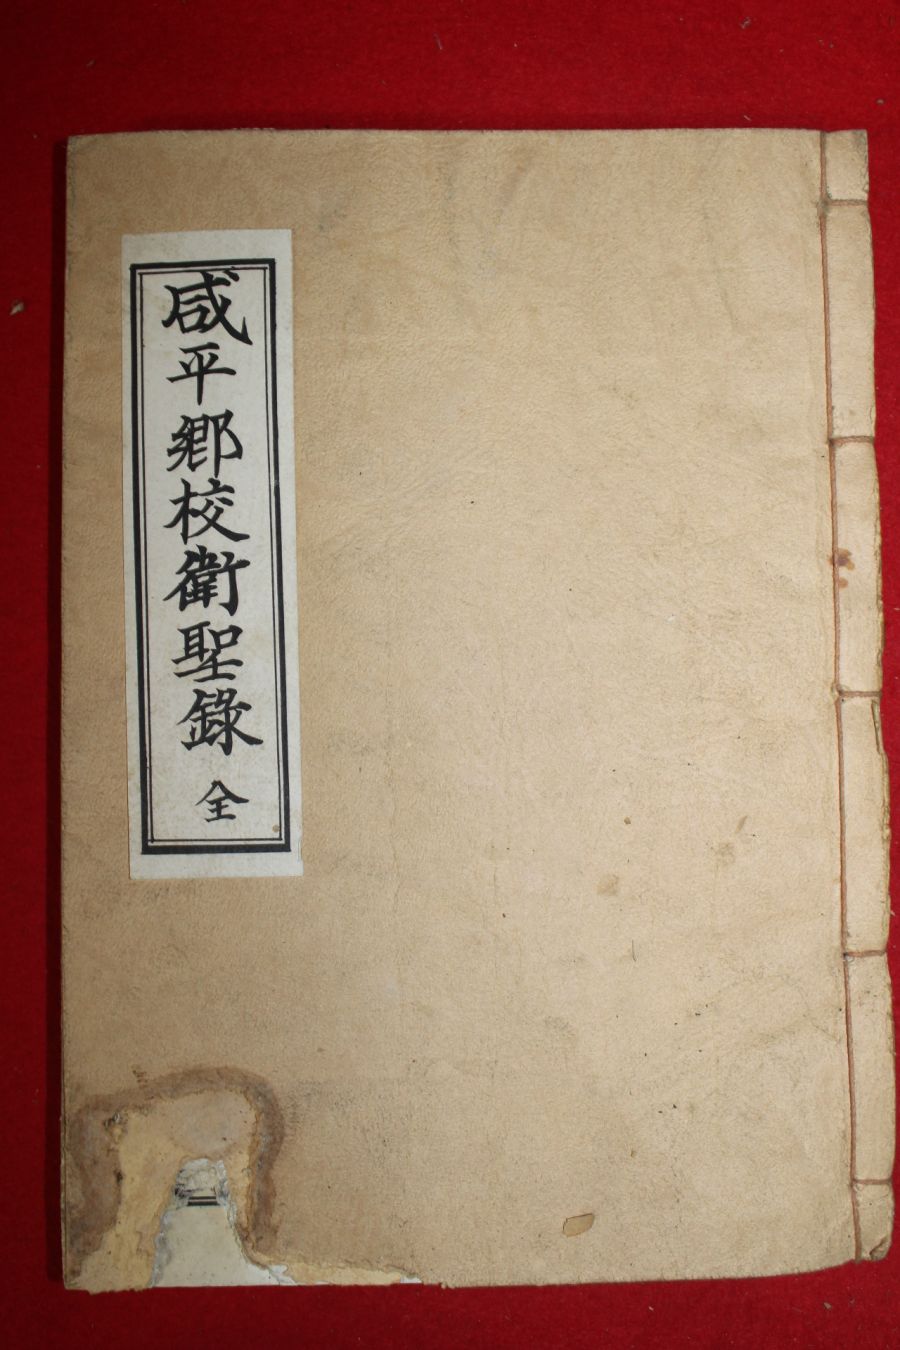 咸平鄕校衛聖錄 全